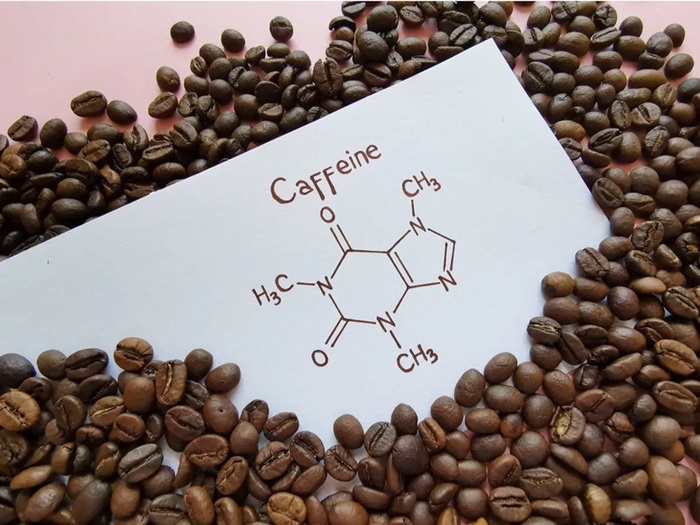 Caffeine
O
CH₃
N
H₃C
N
N
N
O
CH₃